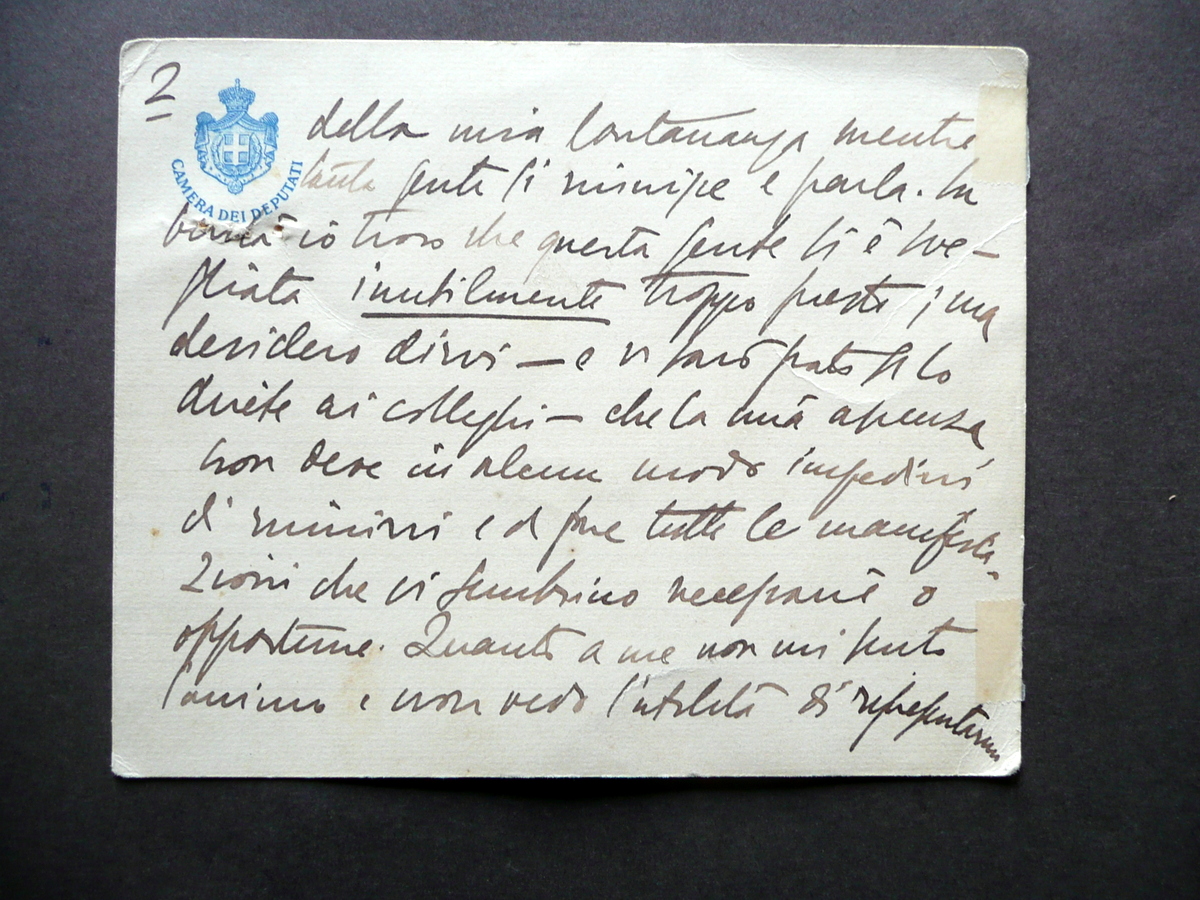 2
CAMERA DEI DEPUTATI
della mia lontananza mentre
tanta gente si riunisce e parla. In
verità io trovo che questa gente si è sve-
gliata inutilmente troppo presto; ma
desidero dirvi — e vi sarò grato se lo
direte ai colleghi — che la mia assenza
non deve in alcun modo impedirvi
di riunirvi e di fare tutte le manifesta-
zioni che vi sembrino necessarie o
opportune. Quanto a me non mi sento
l'animo e non vedo l'utilità di ripresentarmi